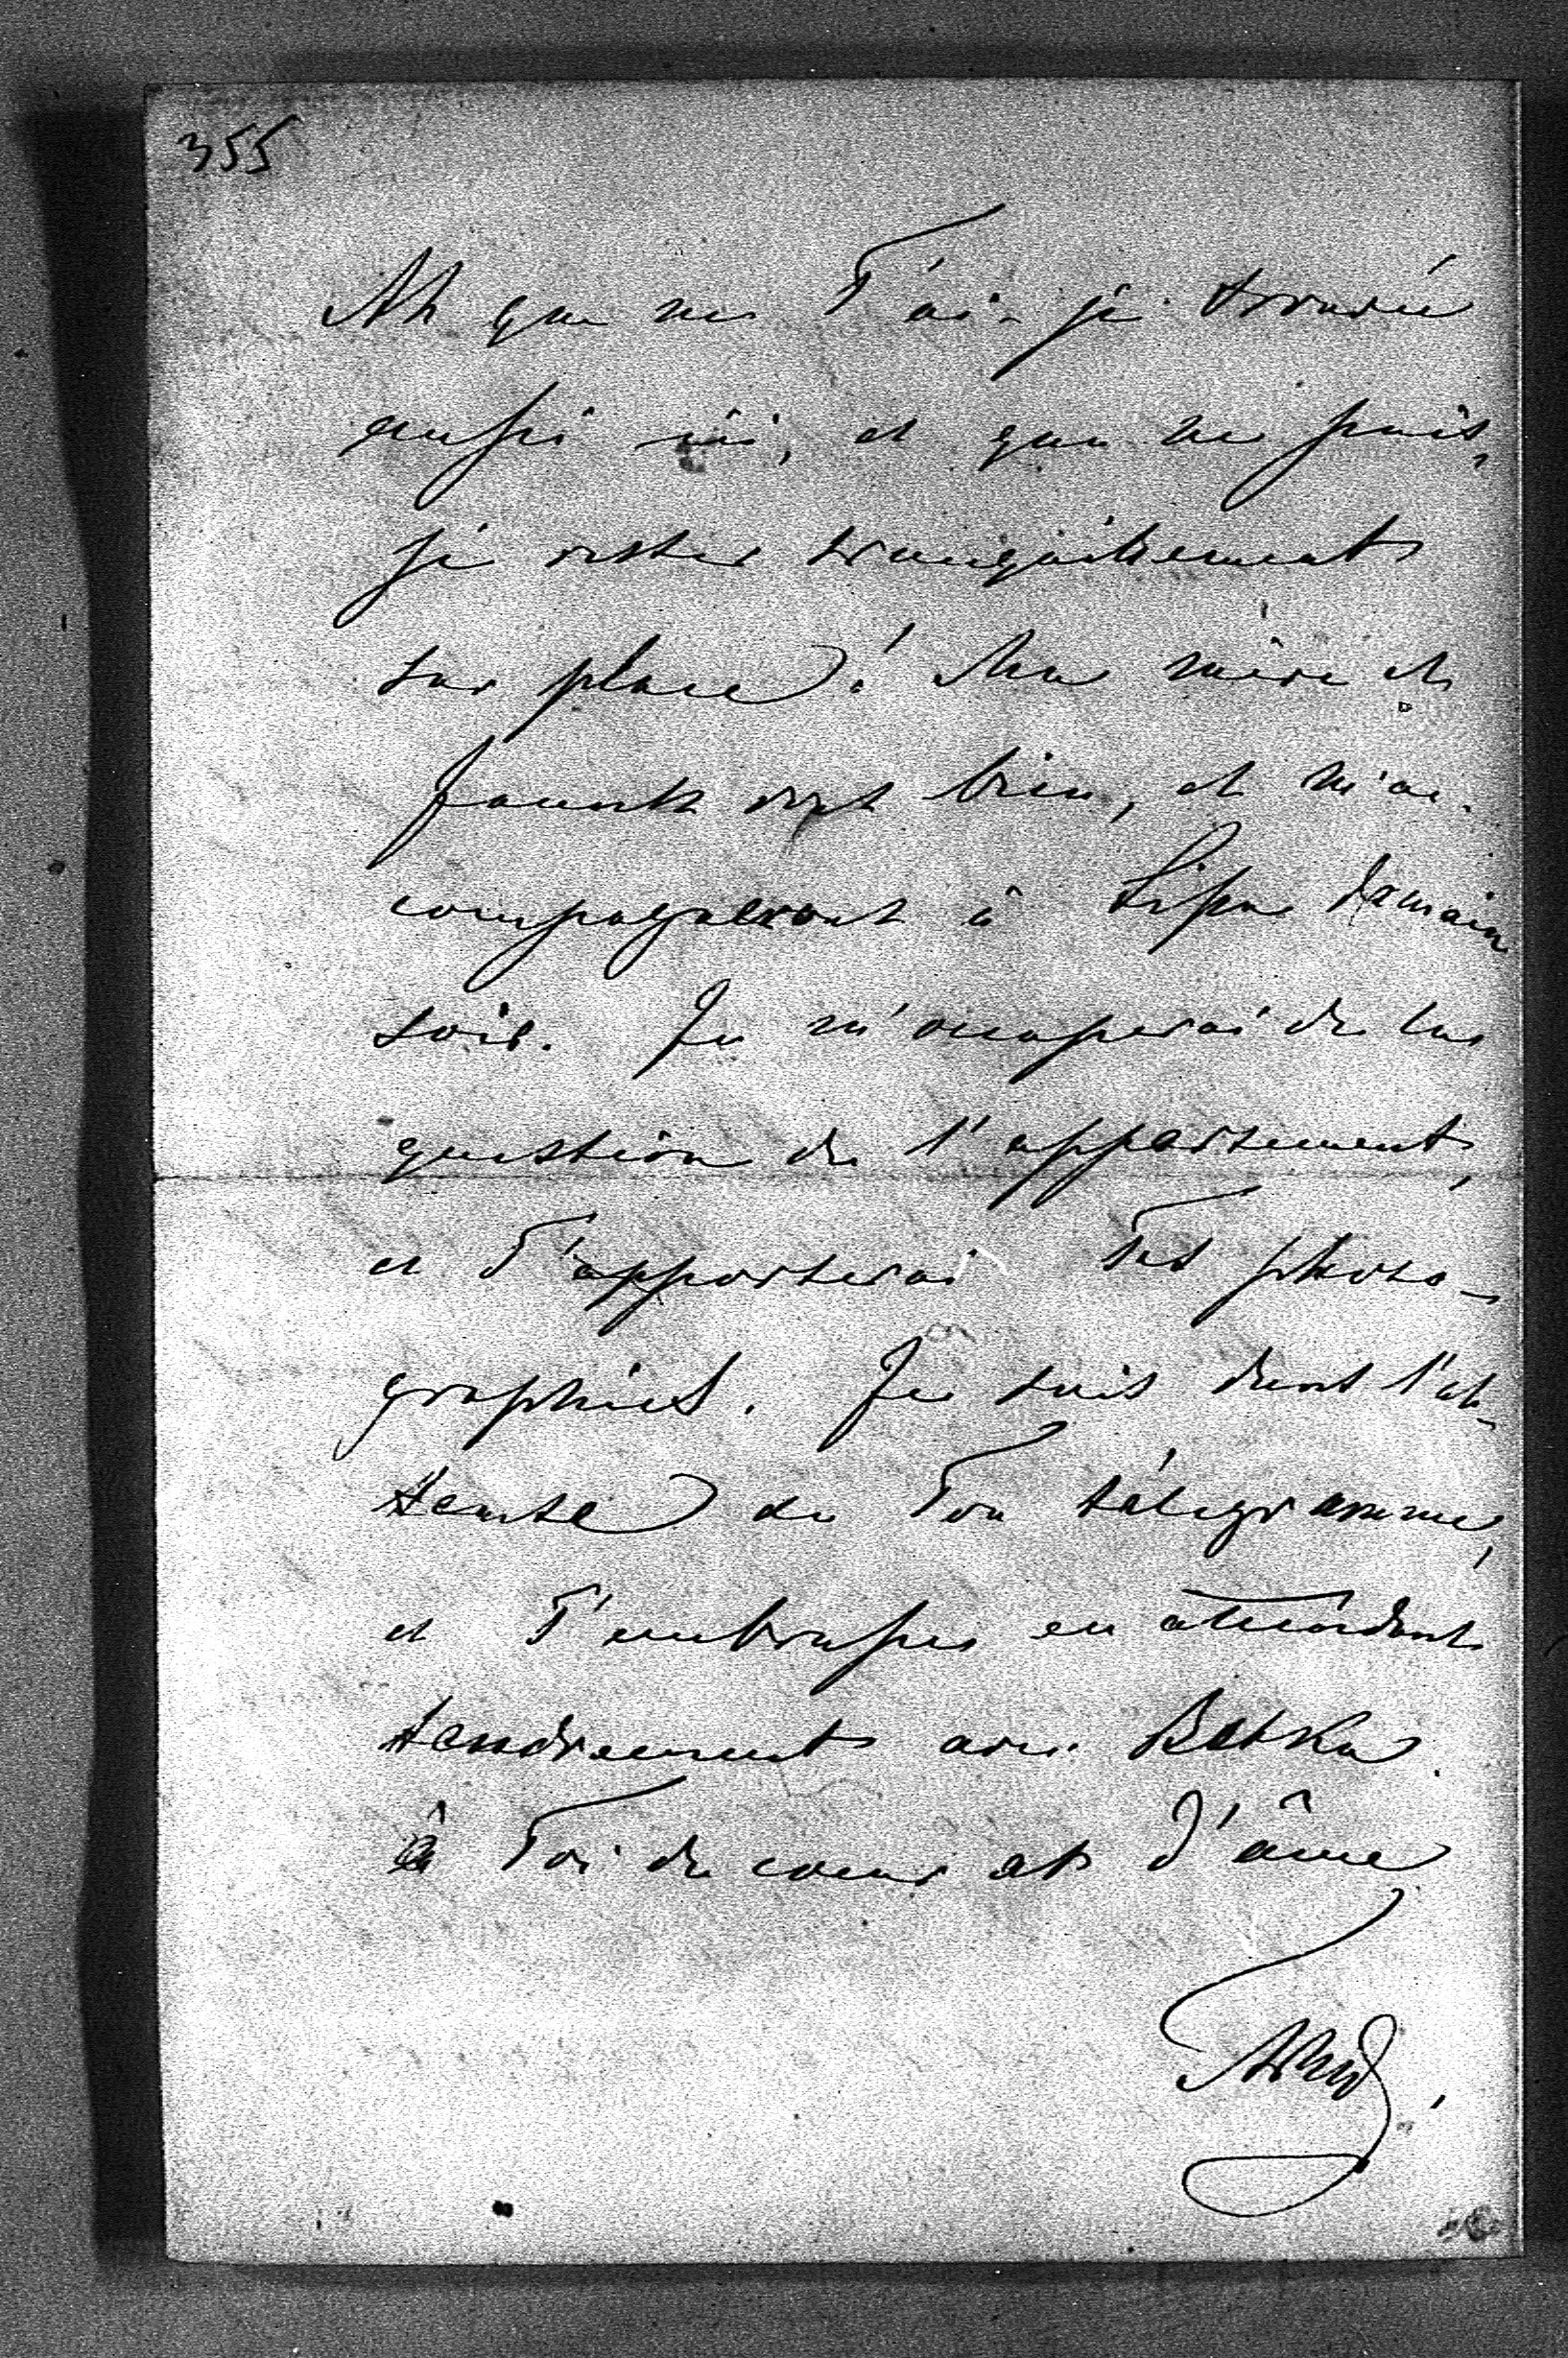 355
Ah que ne T'ai-je trouvée
aussi ici, et que ne puis-
je rester tranquillement
sur place! Ma mère et
vont bien, et m'ac-
compagneront à Lipa demain
soir. Je m'occuperai de la
question de l'appartement,
et T'apporterai Tes photo-
graphies. Je suis dans l'at-
tente de Ton télégramme,
et T'embrasse en attendant
tendrement avec Betka.
à Toi de coeur et d'âme